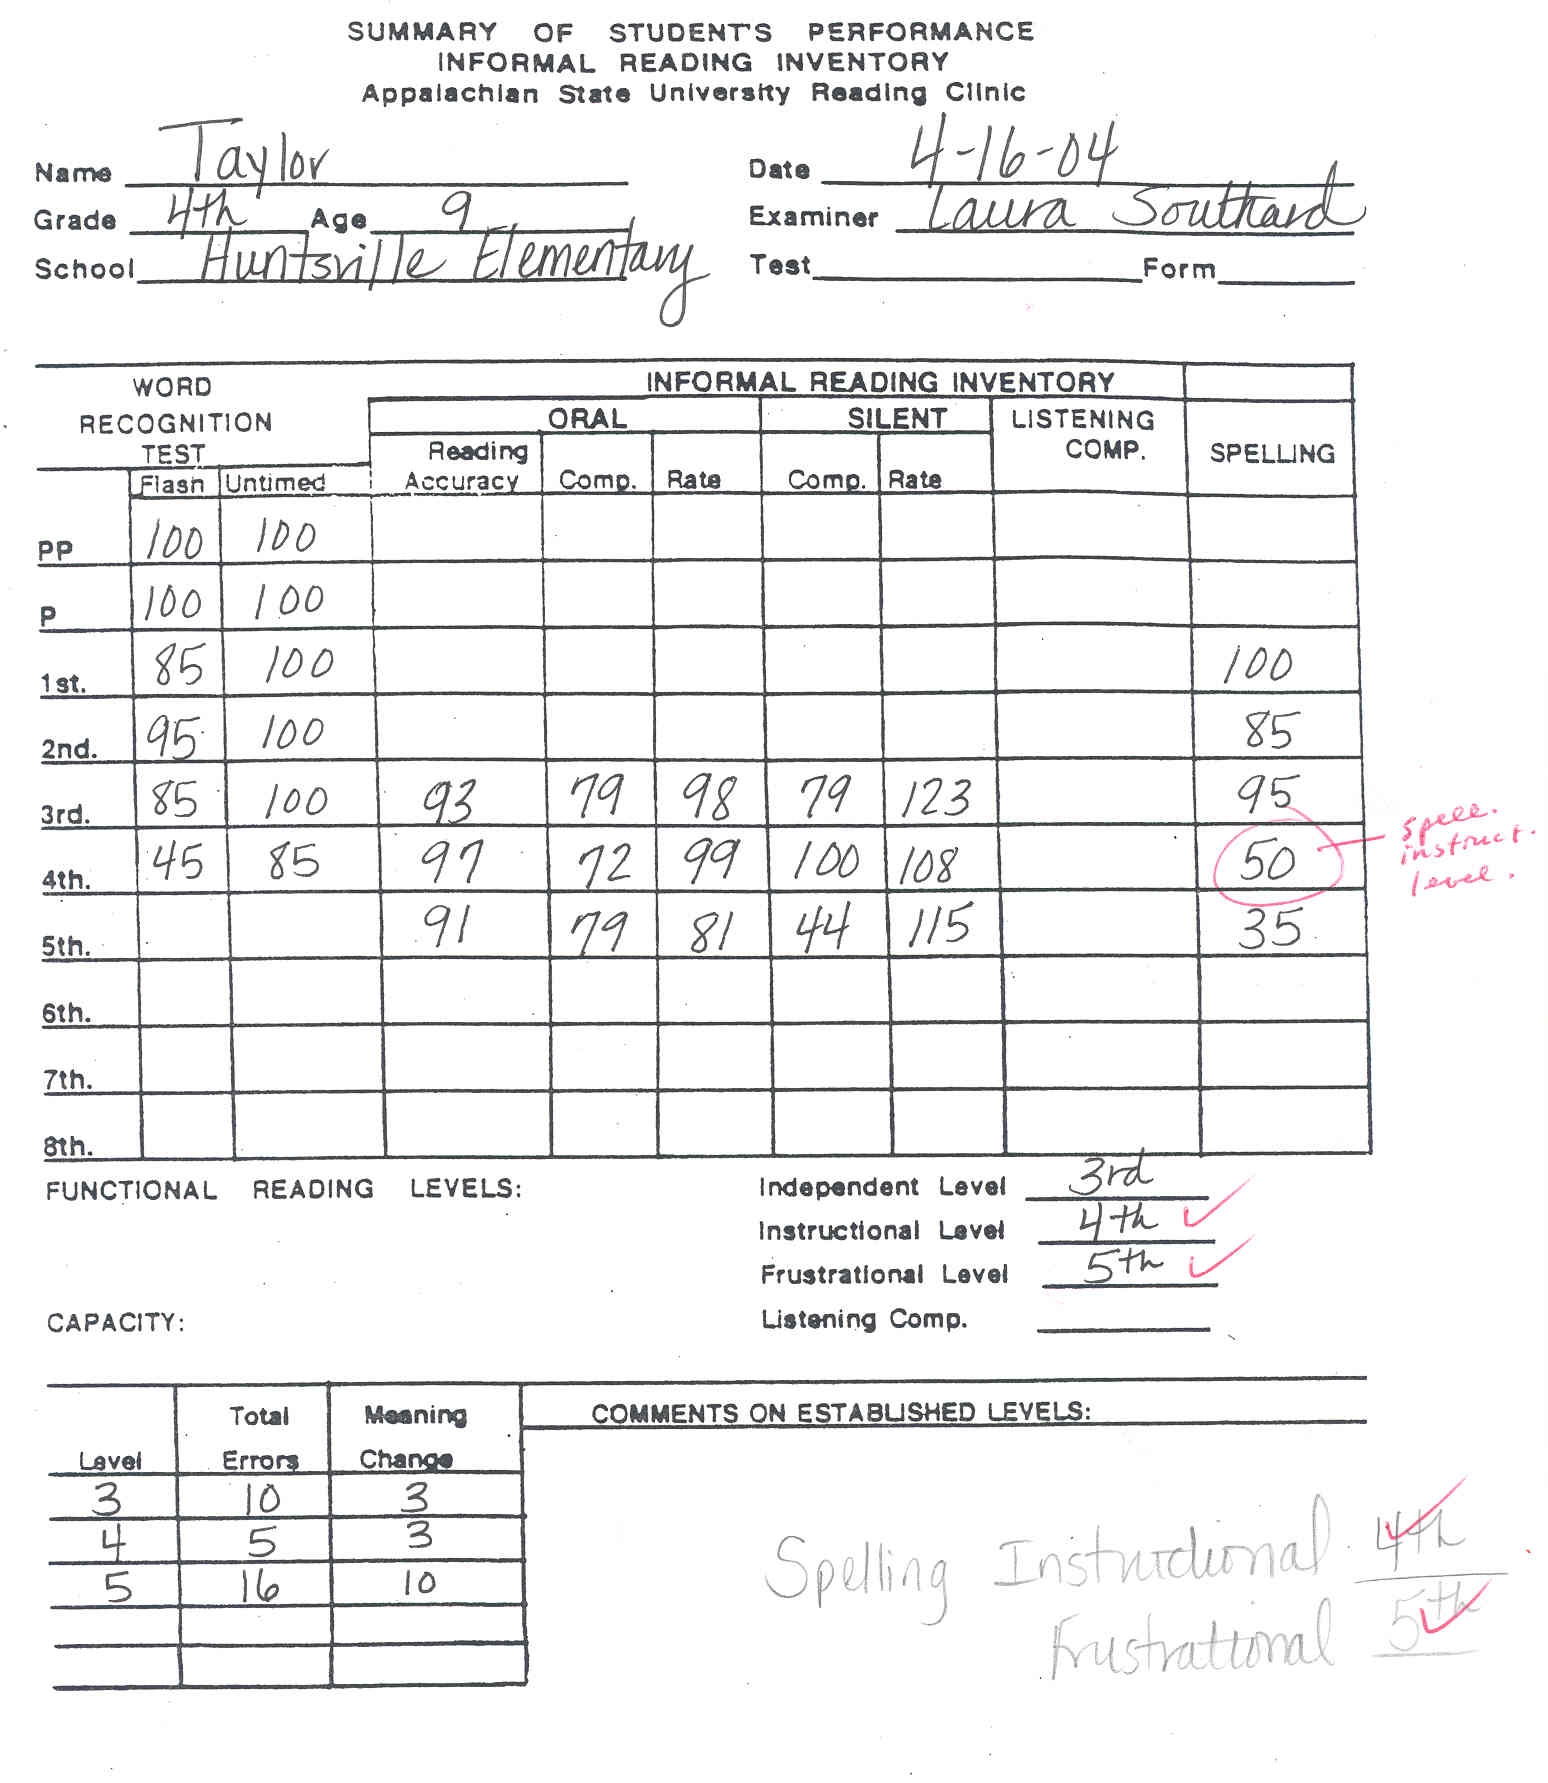 SUMMARY OF STUDENT'S PERFORMANCE
INFORMAL READING INVENTORY
Appalachian State University Reading Clinic
Name Taylor Date 4-16-04
Grade 4th Age 9 Examiner Laura Southard
School Huntsville Elementary Test Form
WORD RECOGNITION TEST
INFORMAL READING INVENTORY
ORAL SILENT LISTENING COMP. SPELLING
Flash Untimed Reading Accuracy Comp. Rate Comp. Rate
PP 100 100
P 100 100
1st. 85 100 100
2nd. 95 100 85
3rd. 85 100 93 79 98 79 123 95
4th. 45 85 97 72 99 100 108 50 spell. instruct. level.
5th. 91 79 81 44 115 35
6th.
7th.
8th.
FUNCTIONAL READING LEVELS: Independent Level 3rd
Instructional Level 4th
Frustrational Level 5th
CAPACITY: Listening Comp.
Level Total Errors Meaning Change COMMENTS ON ESTABLISHED LEVELS:
3 10 3
4 5 3
5 16 10
Spelling Instructional 4th
Frustrational 5th